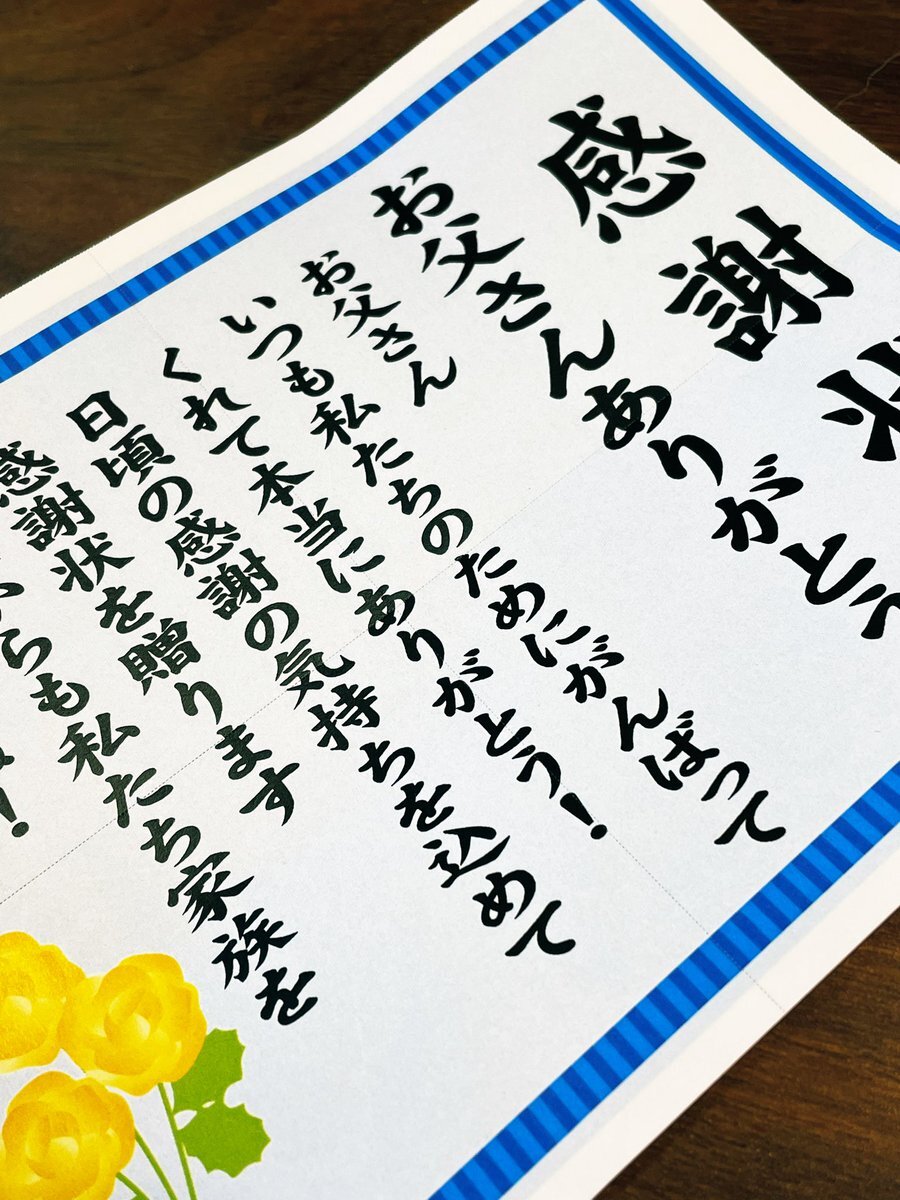 感謝状
お父さんありがとう
お父さん
いつも私たちのためにがんばって
くれて本当にありがとう！
日頃の感謝の気持ちを込めて
感謝状を贈ります
らも私たち家族を
！